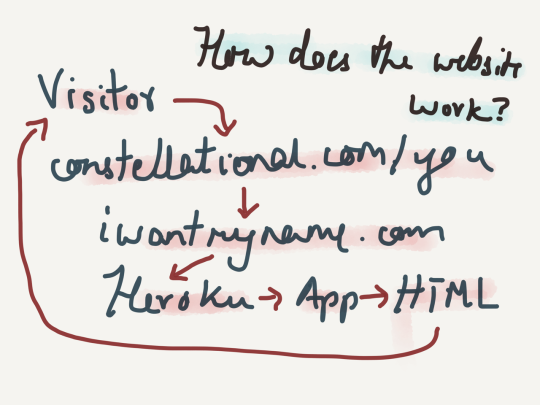 How does the website
work?
Visitor
constellational.com/you
iwantmyname.com
Heroku → App → HTML